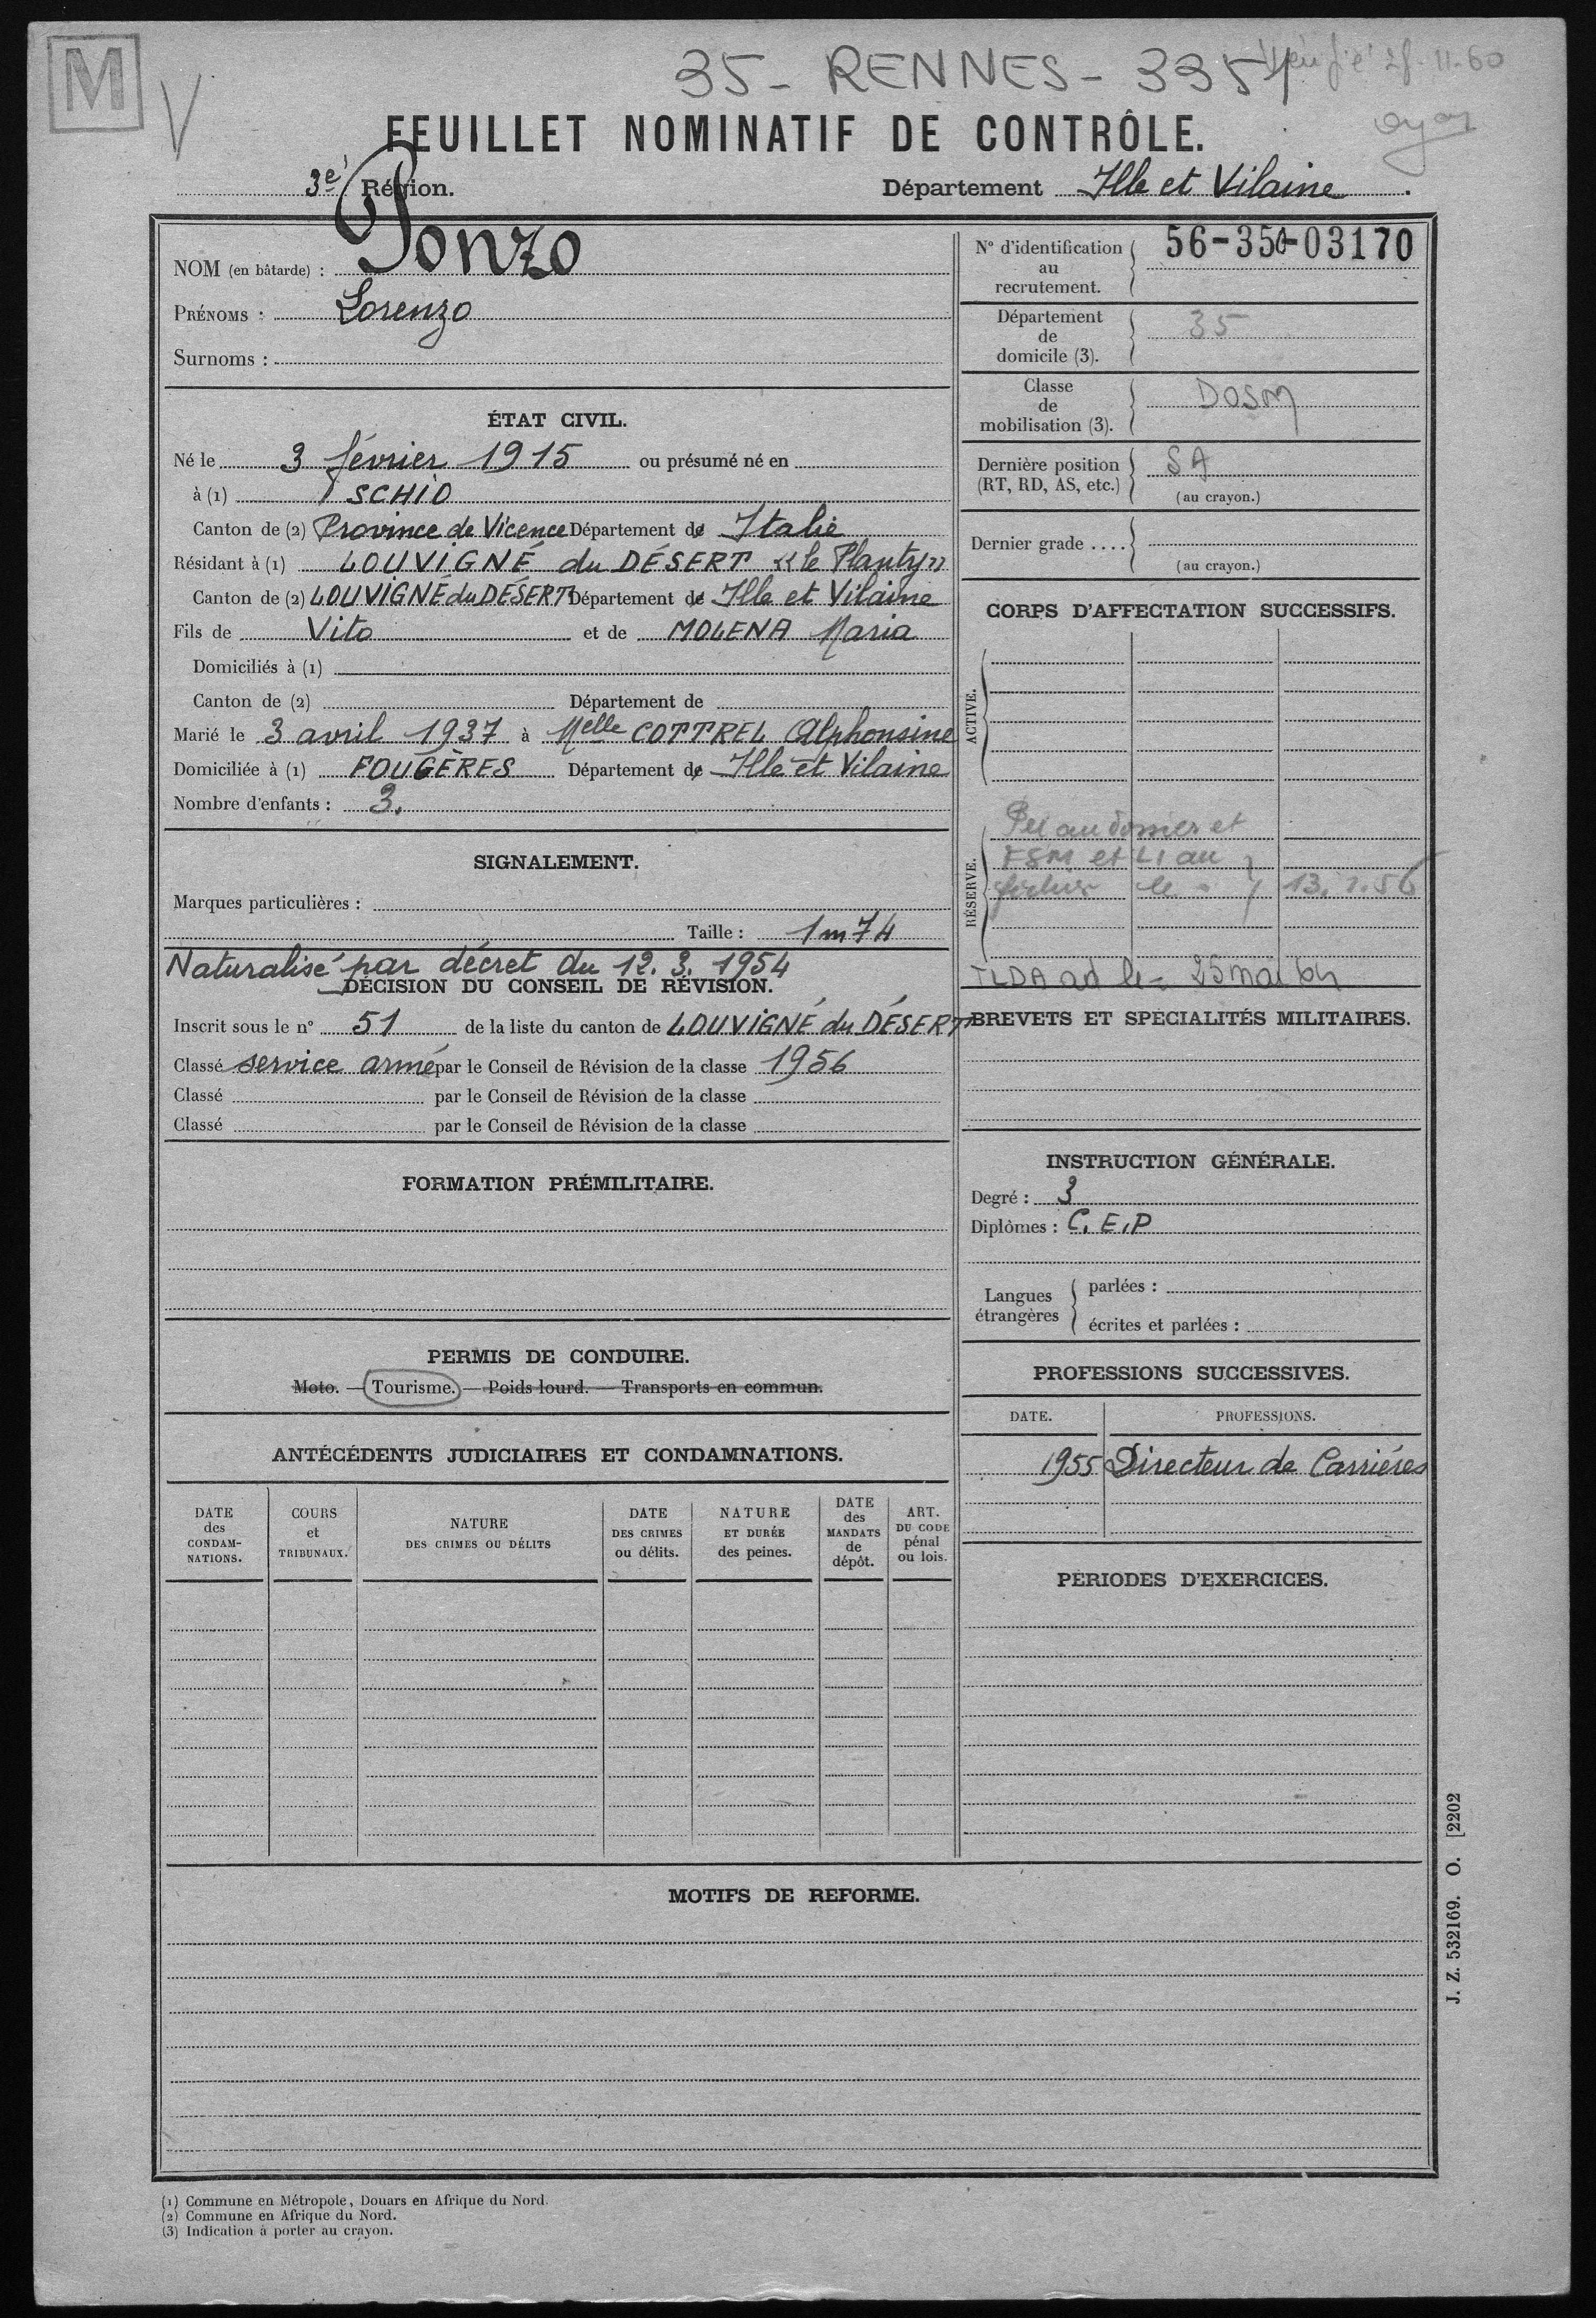 M
V
35 - RENNES - 3354
28-11-60
FEUILLET NOMINATIF DE CONTRÔLE.
3e Région.
Département Ille et Vilaine.
NOM (en bâtarde) : Ponzo
PRÉNOMS : Lorenzo
Surnoms :
ÉTAT CIVIL.
Né le 3 février 1915 ou présumé né en
à (1) SCHIO
Canton de (2) Province de Vicence Département de Italie
Résidant à (1) LOUVIGNÉ du DÉSERT « le Planty »
Canton de (2) LOUVIGNÉ du DÉSERT Département de Ille et Vilaine
Fils de Vito et de MOLENA Maria
Domiciliés à (1)
Canton de (2) Département de
Marié le 3 avril 1937 à Melle COTTREL Alphonsine
Domiciliée à (1) FOUGÈRES Département de Ille et Vilaine
Nombre d'enfants : 3.
SIGNALEMENT.
Marques particulières :
Taille : 1m74
Naturalisé par décret du 12.3.1954
DÉCISION DU CONSEIL DE RÉVISION.
Inscrit sous le n° 51 de la liste du canton de LOUVIGNÉ du DÉSERT
Classé service armé par le Conseil de Révision de la classe 1956
Classé par le Conseil de Révision de la classe
Classé par le Conseil de Révision de la classe
FORMATION PRÉMILITAIRE.
PERMIS DE CONDUIRE.
Moto. — Tourisme. — Poids lourd. — Transports en commun.
ANTÉCÉDENTS JUDICIAIRES ET CONDAMNATIONS.
DATE des CONDAM-NATIONS.
COURS et TRIBUNAUX.
NATURE DES CRIMES OU DÉLITS
DATE DES CRIMES ou délits.
NATURE ET DURÉE des peines.
DATE des MANDATS de dépôt.
ART. DU CODE pénal ou lois.
N° d'identification au recrutement. 56-350-03170
Département de domicile (3). 35
Classe de mobilisation (3). DOSM
Dernière position (RT, RD, AS, etc.) SA
(au crayon.)
Dernier grade ....
(au crayon.)
CORPS D'AFFECTATION SUCCESSIFS.
ACTIVE.
RÉSERVE.
au dossier et
FSM et LI au
fichier le 13.
25 mai 64
BREVETS ET SPÉCIALITÉS MILITAIRES.
INSTRUCTION GÉNÉRALE.
Degré : 3
Diplômes : C.E.P
Langues étrangères
parlées :
écrites et parlées :
PROFESSIONS SUCCESSIVES.
DATE. PROFESSIONS.
1955 Directeur de Carrières
PÉRIODES D'EXERCICES.
MOTIFS DE REFORME.
J. Z. 532169. O. [2202
(1) Commune en Métropole, Douars en Afrique du Nord.
(2) Commune en Afrique du Nord.
(3) Indication à porter au crayon.